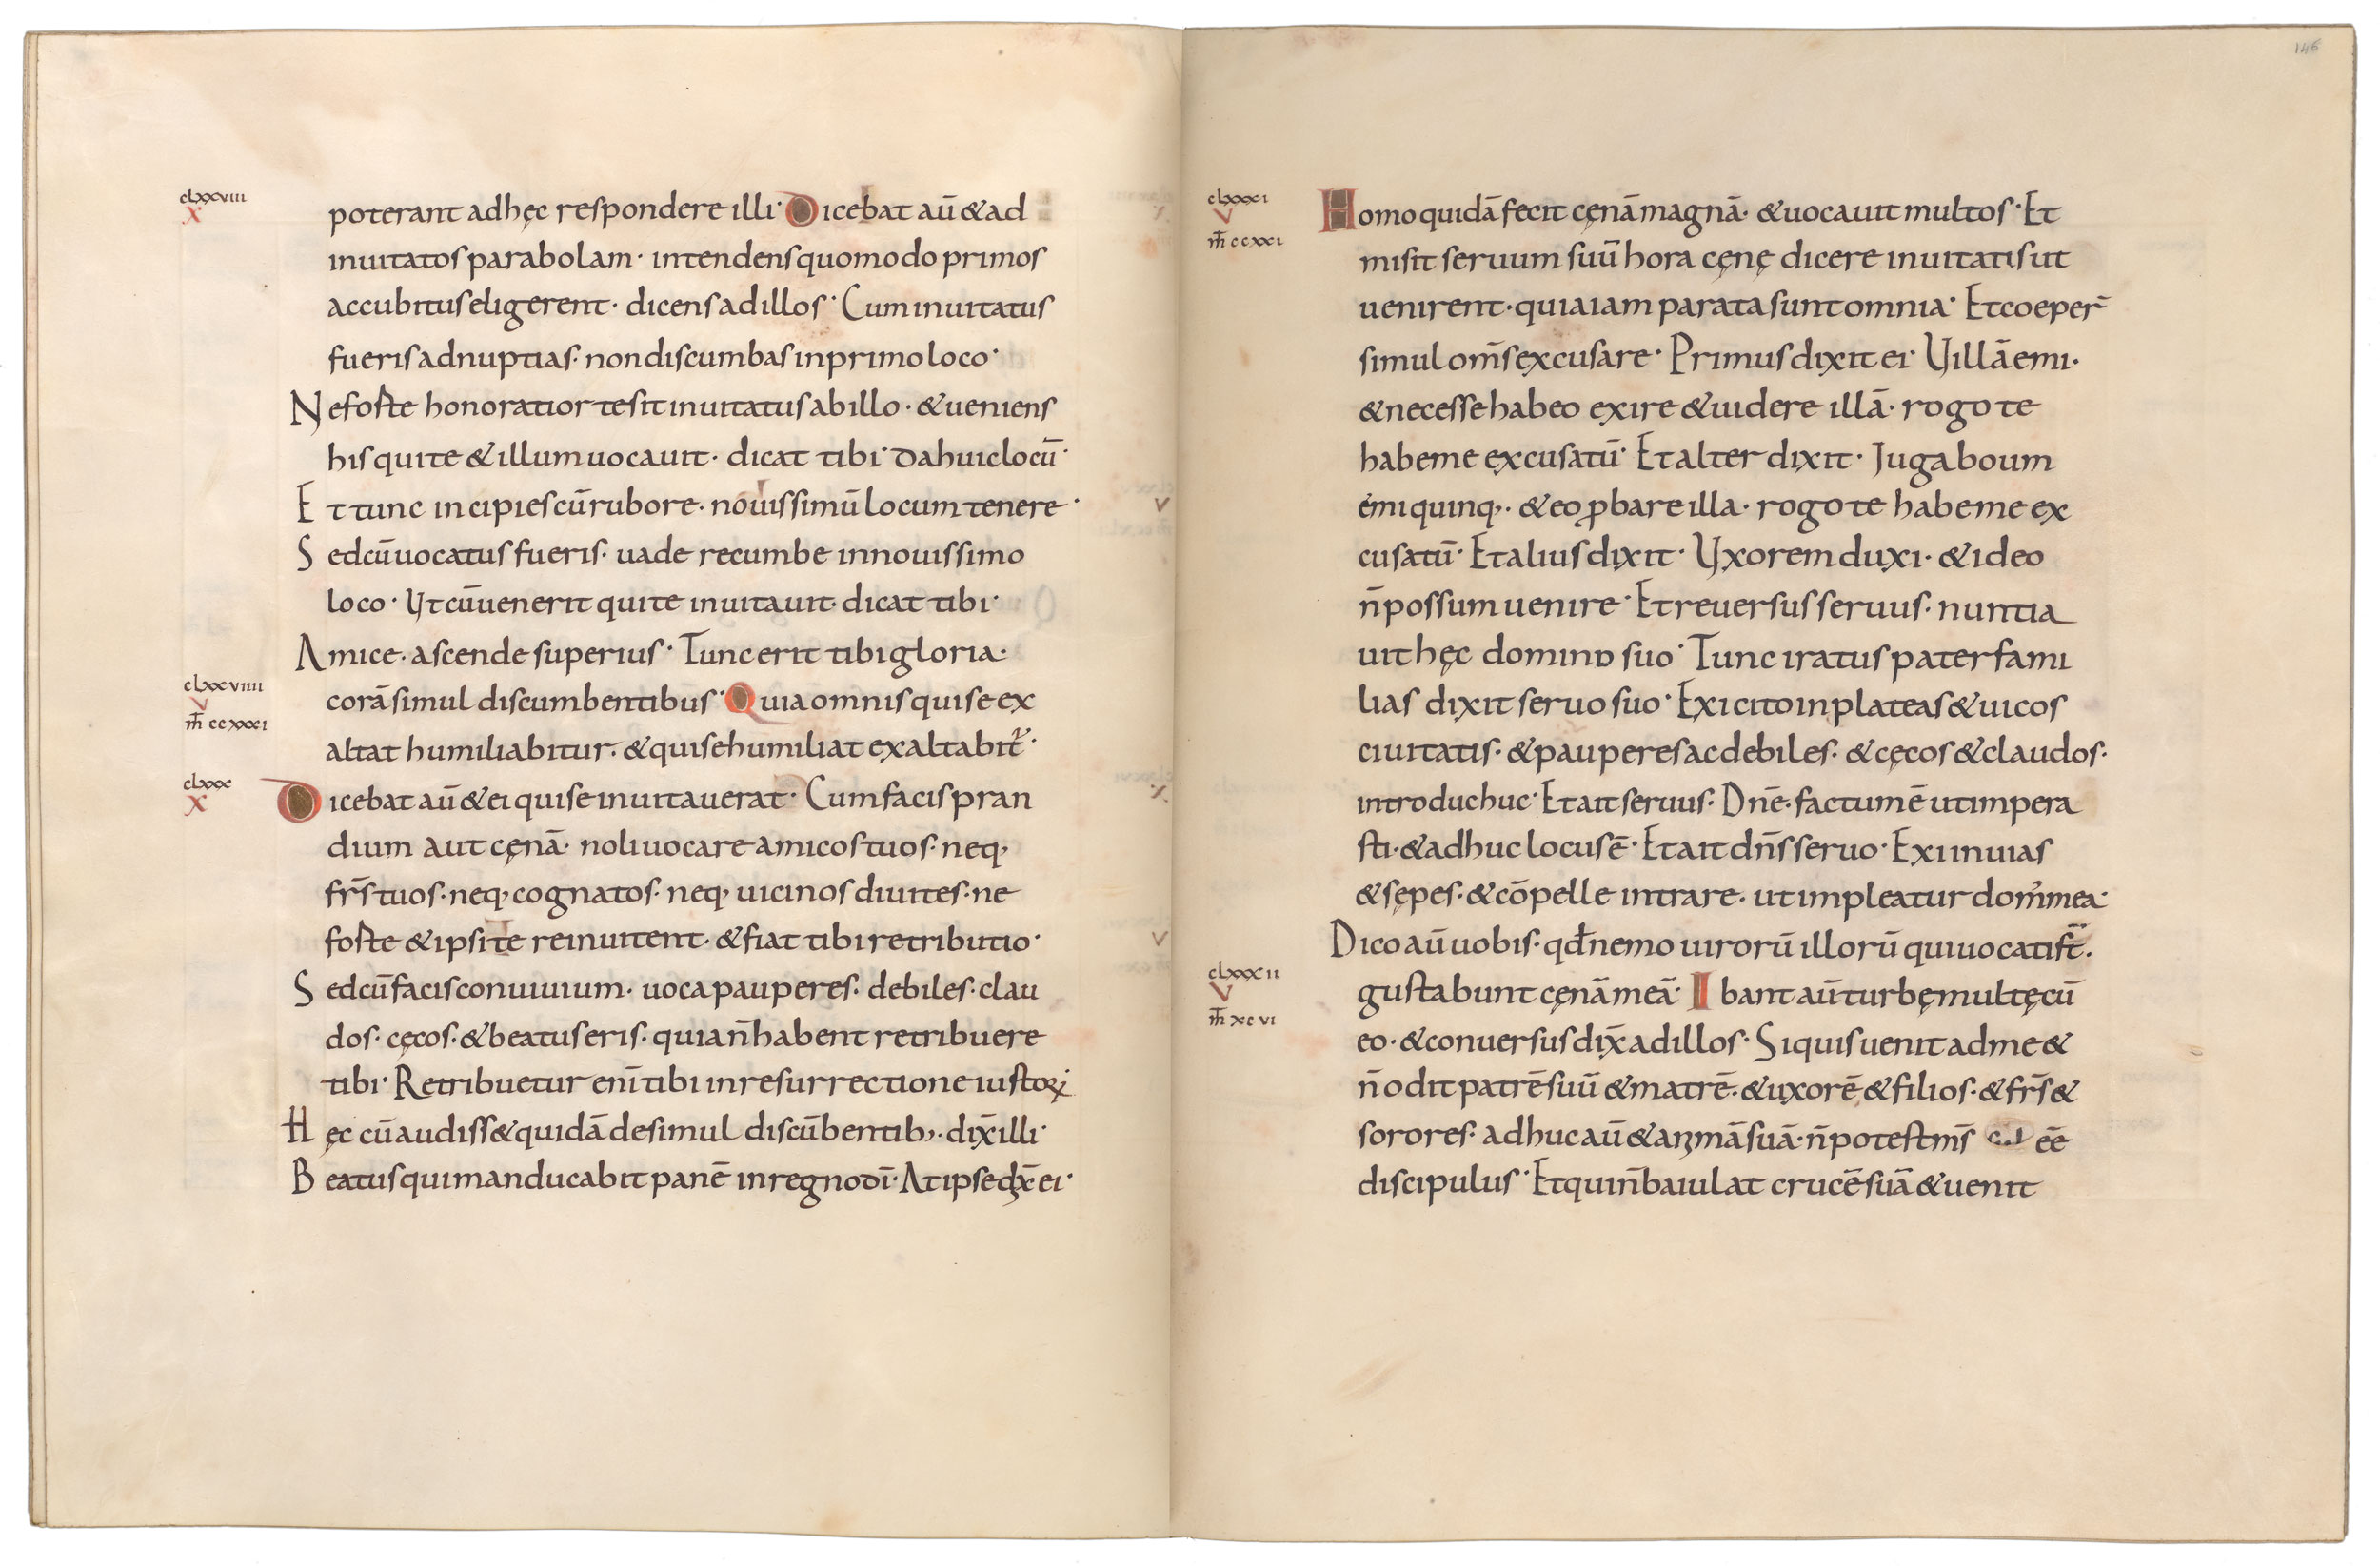 clxxviii
x
poterant adhęc respondere illi· Dicebat aū &ad
inuitatos parabolam· intendens quomodo primos
accubitus eligerent· dicens ad illos· Cum inuitatus
fueris ad nuptias· non discumbas in primo loco·
Ne forte honoratior te sit inuitatus ab illo· & ueniens
his qui te & illum uocauit· dicat tibi· da huic locū·
Et tunc incipies cū rubore· nouissimū locum tenere·
Sed cū uocatus fueris· uade recumbe in nouissimo
loco· Ut cū uenerit qui te inuitauit· dicat tibi·
Amice· ascende superius· Tunc erit tibi gloria·
clxxviiii
v
m̄ ccxxxi
corā simul discumbentibus· Quia omnis qui se ex
altat humiliabitur· & qui se humiliat exaltabit̄·
clxxx
x
Dicebat aū & ei qui se inuitauerat· Cum facis pran
dium aut cęnā· noli uocare amicos tuos· neq;
fr̄s tuos· neq; cognatos· neq; uicinos diuites· ne
forte & ipsi te reinuitent· & fiat tibi retributio·
Sed cū facis conuiuium· uoca pauperes· debiles· clau
dos· cęcos· & beatus eris· quia n̄ habent retribuere
tibi· Retribuetur enī tibi in resurrectione iustoꝝ
Hęc cū audiss& quidā de simul discūbentib;· dix̄ illi·
Beatus qui manducabit panē in regno dī· At ipse dx̄ ei·
clxxxi
v
m̄ ccxxi
Homo quidā fecit cęnā magnā· & uocauit multos· Et
misit seruum suū hora cęnę dicere inuitatis ut
uenirent· quia iam parata sunt omnia· Et coeper̄
simul om̄s excusare· Primus dixit ei· Uillā emi·
& necesse habeo exire & uidere illā· rogo te
habe me excusatū· Et alter dixit· Juga boum
emi quinq;· & eo ꝓbare illa· rogo te habe me ex
cusatū· Et alius dixit· Uxorem duxi· & ideo
n̄ possum uenire· Et reuersus seruus· nuntia
uit hęc domino suo· Tunc iratus pater fami
lias dixit seruo suo· Exi cito in plateas & uicos
ciuitatis· & pauperes ac debiles· & cęcos & claudos·
introduc huc· Et ait seruus· Dn̄e· factum ē ut impera
sti· & adhuc locus ē· Et ait dn̄s seruo· Exi in uias
& sępes· & cōpelle intrare· ut impleatur dom' mea·
Dico aū uobis· qđ nemo uirorū illorū qui uocati st̄·
clxxxii
v
m̄ xcvi
gustabunt cęnā meā· Ibant aū turbę multę cū
eo· & conuersus dix̄ ad illos· Si quis uenit ad me &
n̄ odit patrē suū & matrē· & uxorē & filios· & fr̄s &
sorores· adhuc aū & animā suā· n̄ potest m̄s eē
discipulus· Et qui n̄ baiulat crucē suā & uenit
146